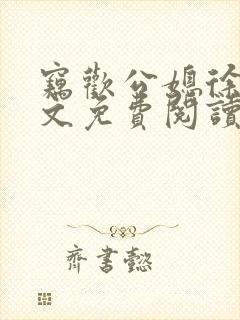 竊歡公媳徐
文免費閱讀
齊書懿